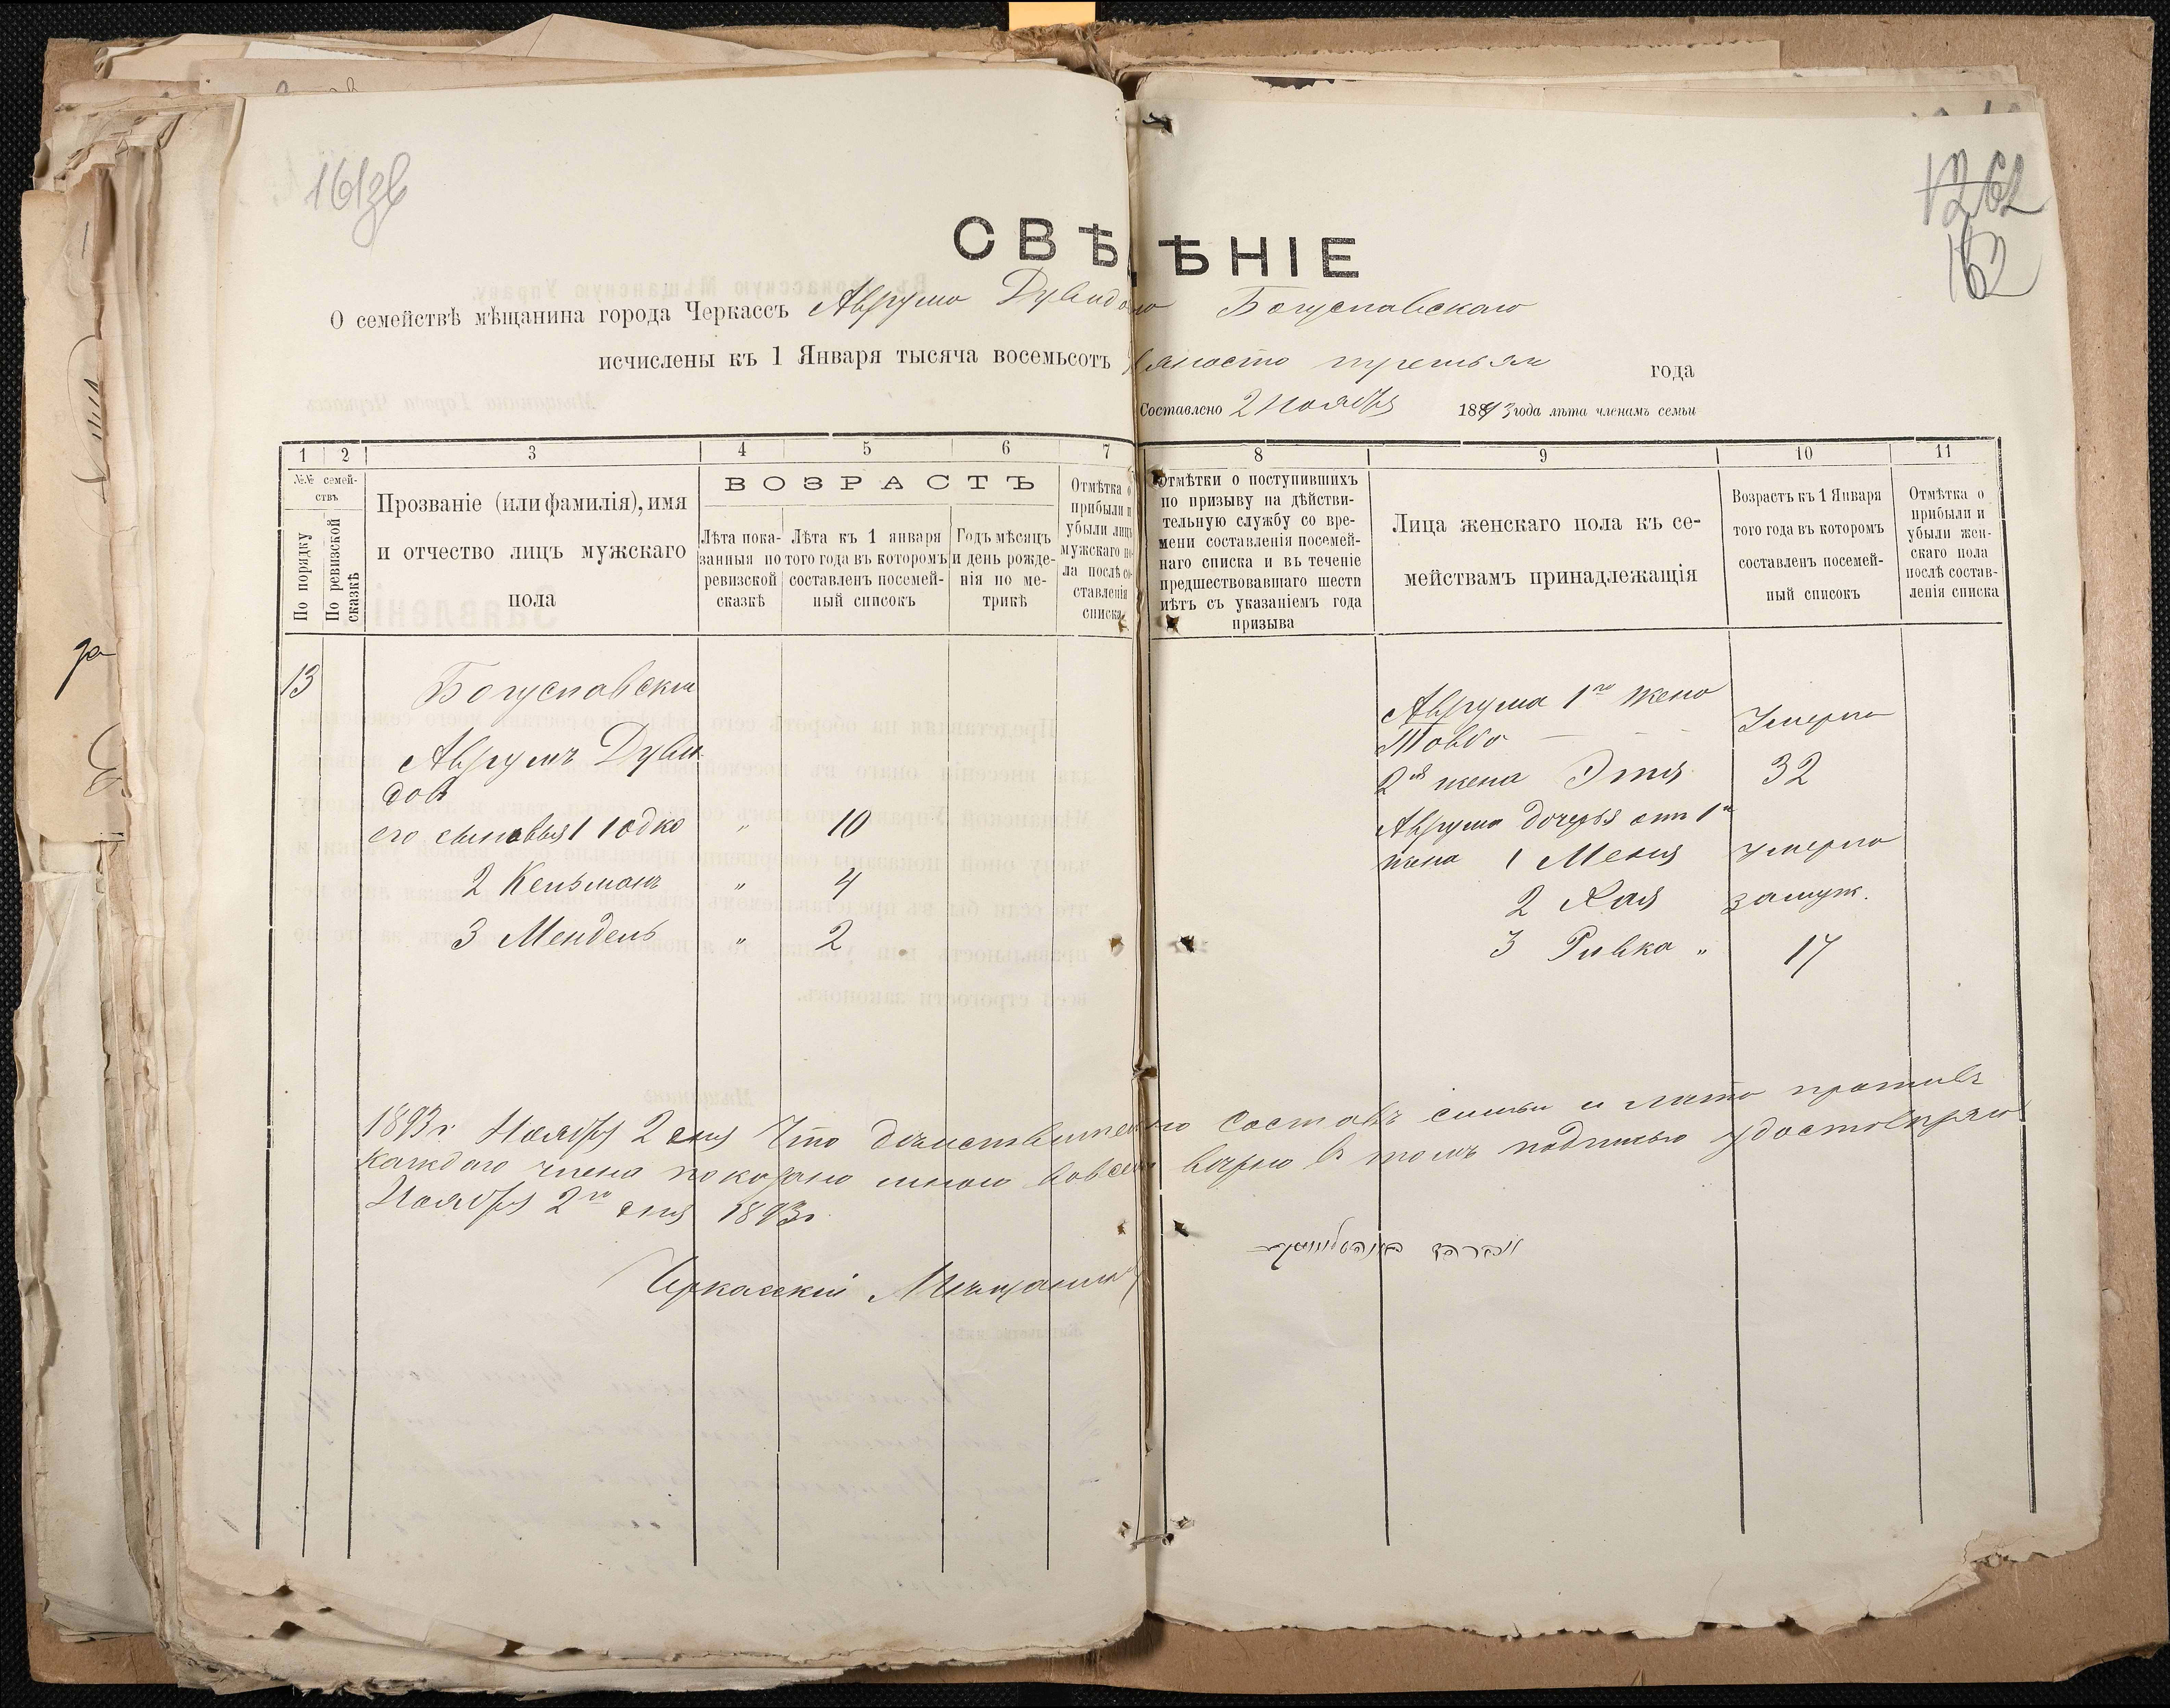 161зв
1262
162
СВѢДѢНІЕ
О семействѣ мѣщанина города Черкассъ Аврума Дувидова Богуславскаго
исчислены къ 1 Января тысяча восемьсотъ девяносто третьяго года
Составлено 2 Ноября 1893 года лѣта членамъ семьи
1 2 3 4 5 6 7 8 9 10 11
№№ семей-
ствъ
По порядку
По ревизской
сказкѣ
Прозваніе (или фамилія), имя
и отчество лицъ мужскаго
пола
ВОЗРАСТЪ
Лѣта пока-
занныя по
ревизской
сказкѣ
Лѣта къ 1 января
того года въ которомъ
составленъ посемей-
ный списокъ
Годъ мѣсяцъ
и день рожде-
нія по ме-
трикѣ
Отмѣтка о
прибыли и
убыли лицъ
мужскаго по-
ла послѣ со-
ставленія
списка
Отмѣтки о поступившихъ
по призыву на дѣйстви-
тельную службу со вре-
мени составленія посемей-
наго списка и въ теченіе
предшествовавшаго шести
лѣтъ съ указаніемъ года
призыва
Лица женскаго пола къ се-
мействамъ принадлежащія
Возрастъ къ 1 Января
того года въ которомъ
составленъ посемей-
ный списокъ
Отмѣтка о
прибыли и
убыли жен-
скаго пола
послѣ состав-
ленія списка
13 Богуславский
Аврумъ Дуви-
дов
его сыновья 1 Іодко " 10
2 Кельманъ " 4
3 Мендель " 2
Аврума 1го жена
Товба Умерла
2ая жена Этя 32
Аврума дочерья от 1й
жена 1 Меня умерла
2 Хая замуж.
3 Ривка " 17
1893 г. Ноября 2 дня Что дѣиствительно Составъ симьи и лѣта противъ
каждаго члена показано мною вовсем вѣрно в томъ подписью удостовѣряю
Ноября 2го дня 1893 г.
Черкасский Мѣщанинъ